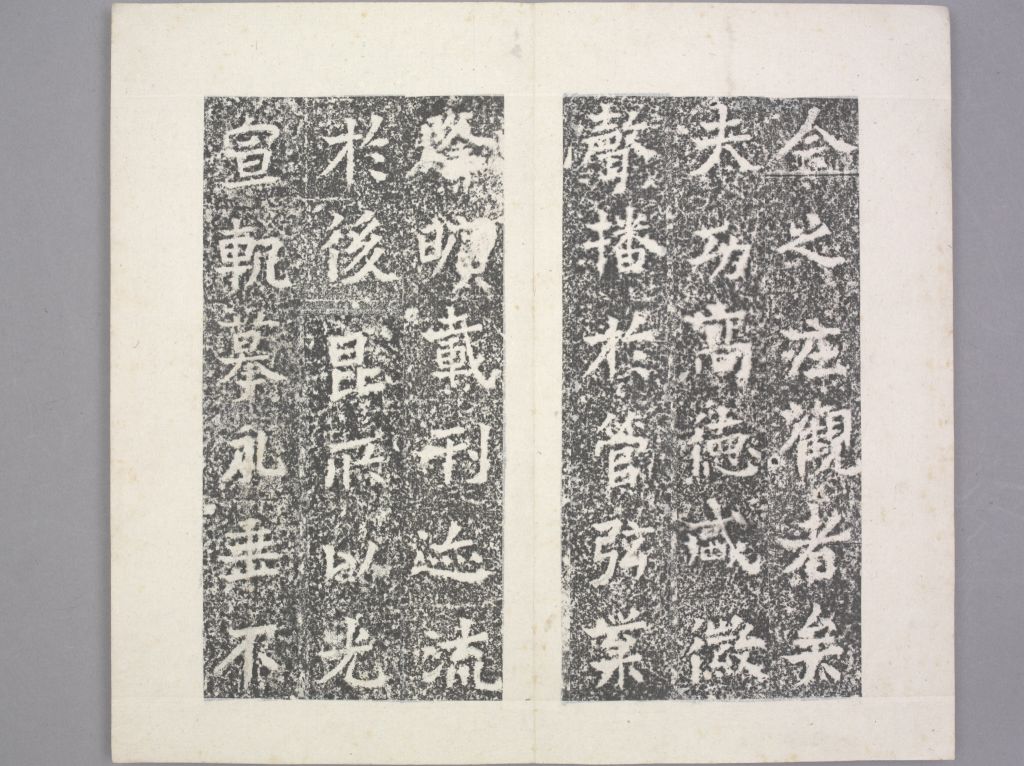 今之在觀者矣
夫功高德盛徽
聲播於管弦業
曠載刊迹流
於後昆所以光
宣軌摹永垂不